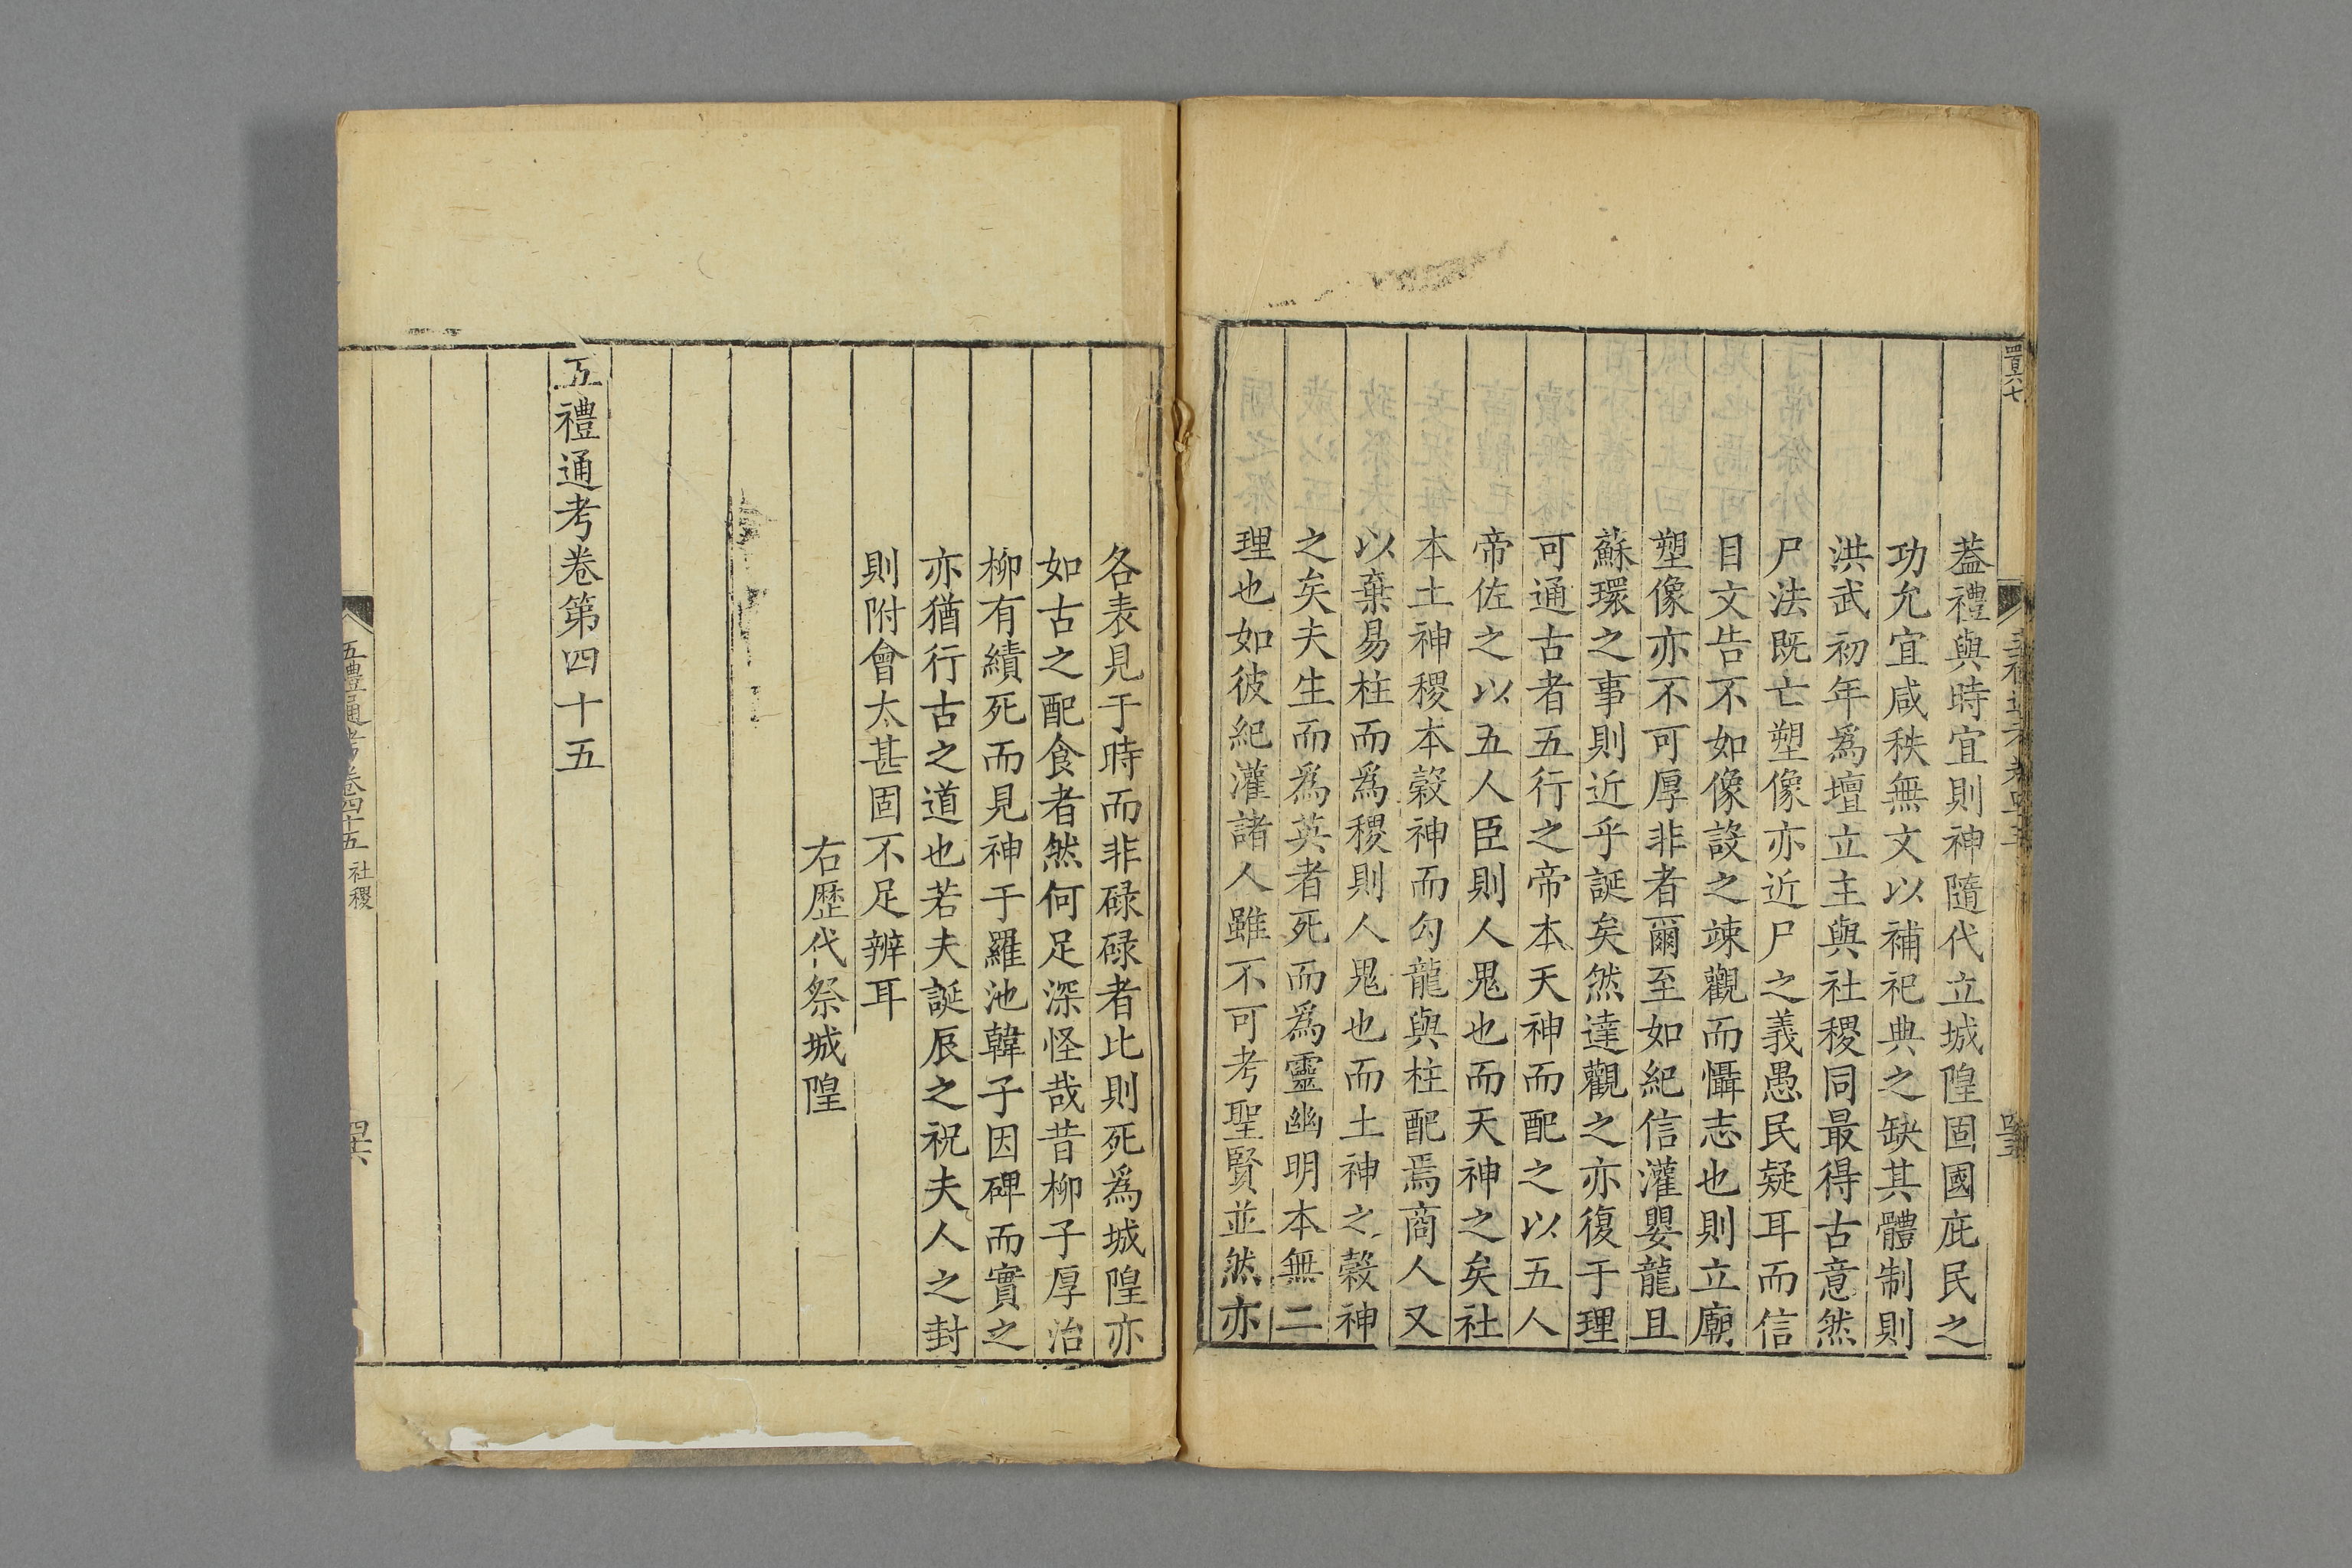 四百六七
蓋禮與時宜則神隨代立城隍固國庇民之
功允宜咸秩無文以補祀典之缺其體制則
洪武初年爲壇立主與社稷同最得古意然
尸法既亡塑像亦近尸之義愚民疑耳而信
目文告不如像設之竦觀而懾志也則立廟
塑像亦不可厚非者爾至如紀信灌嬰龍且
蘇環之事則近乎誕矣然達觀之亦復于理
可通古者五行之帝本天神而配之以五人
帝佐之以五人臣則人鬼也而天神之矣社
本土神稷本穀神而勾龍與柱配焉商人又
以棄易柱而爲稷則人鬼也而土神之穀神
之矣夫生而爲英者死而爲靈幽明本無二
理也如彼紀灌諸人雖不可考聖賢並然亦
各表見于時而非碌碌者比則死爲城隍亦
如古之配食者然何足深怪哉昔柳子厚治
柳有績死而見神于羅池韓子因碑而實之
亦猶行古之道也若夫誕辰之祝夫人之封
則附會太甚固不足辨耳
右歷代祭城隍
五禮通考卷第四十五
五禮通考卷四十五 社稷